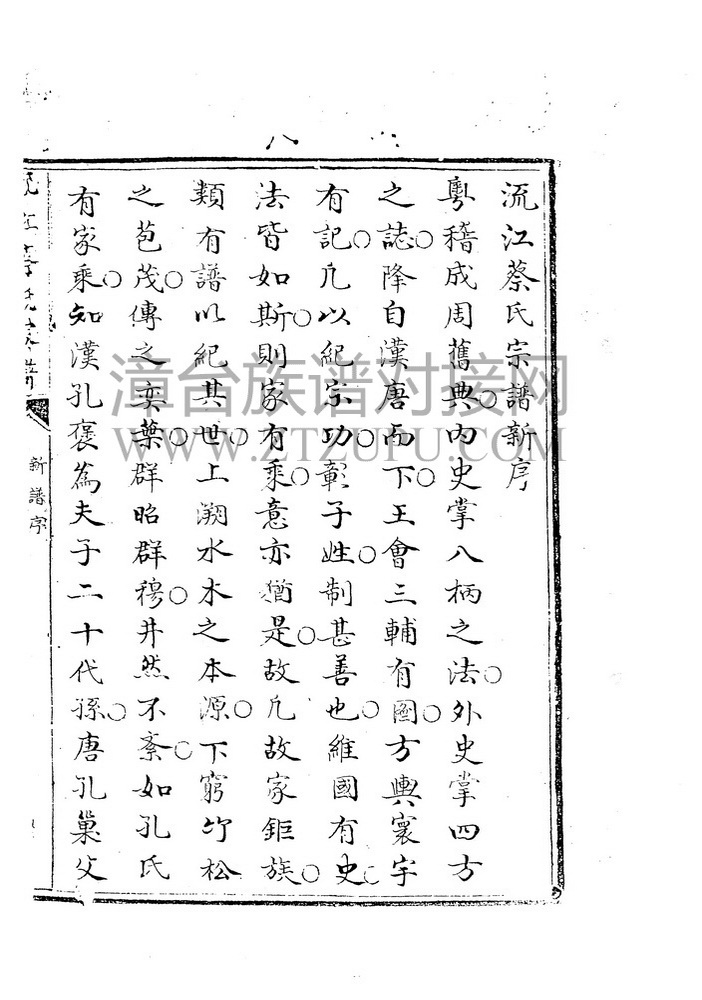 流江蔡氏宗譜新序
粵稽成周舊典○內史掌八柄之法○外史掌四方
之誌○降自漢唐而下○王會三輔有圖○方輿寰宇
有記○凡以紀宗功○彰子姓○制甚善也○維國有史○
法皆如斯○則家有乘○意亦猶是○故凡故家鉅族○
類有譜以紀其世○上溯水木之本源○下窮竹松
之苞茂○傳之奕葉○群昭群穆○井然不紊○如孔氏
有家乘○如漢孔褒為夫子二十代孫○唐孔巢父
新譜序
漳台族谱对接网
WWW.ZTZUPU.COM